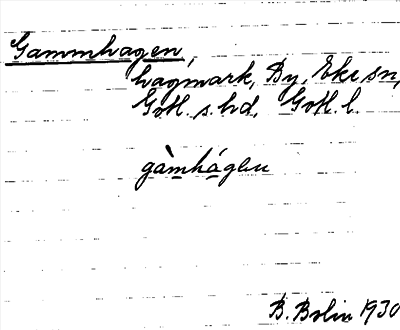 Gammhagen,
hagmark, By, Eke sn,
Gotl. s. hd, Gotl. l.
gàmhágen
B. Bolin 1930